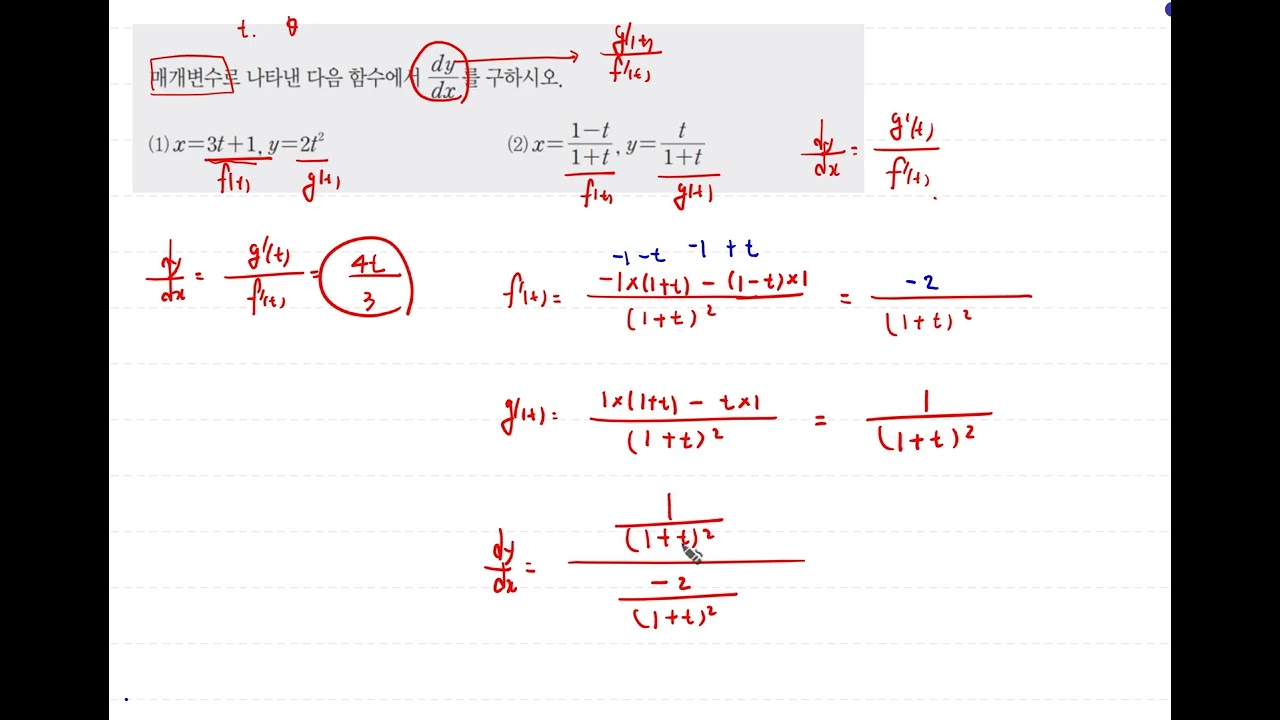 t. θ
g'(t)/f'(t)
매개변수로 나타낸 다음 함수에서 dy/dx를 구하시오.
(1) x=3t+1, y=2t² (2) x=(1-t)/(1+t), y=t/(1+t)
f(t) g(t) f(t) g(t)
dy/dx = g'(t)/f'(t)
dy/dx = g'(t)/f'(t) = 4t/3
-1 -t -1 +t
f'(t) = (-1×(1+t) - (1-t)×1)/(1+t)² = -2/(1+t)²
g'(t) = (1×(1+t) - t×1)/(1+t)² = 1/(1+t)²
dy/dx = (1/(1+t)²)/(-2/(1+t)²)